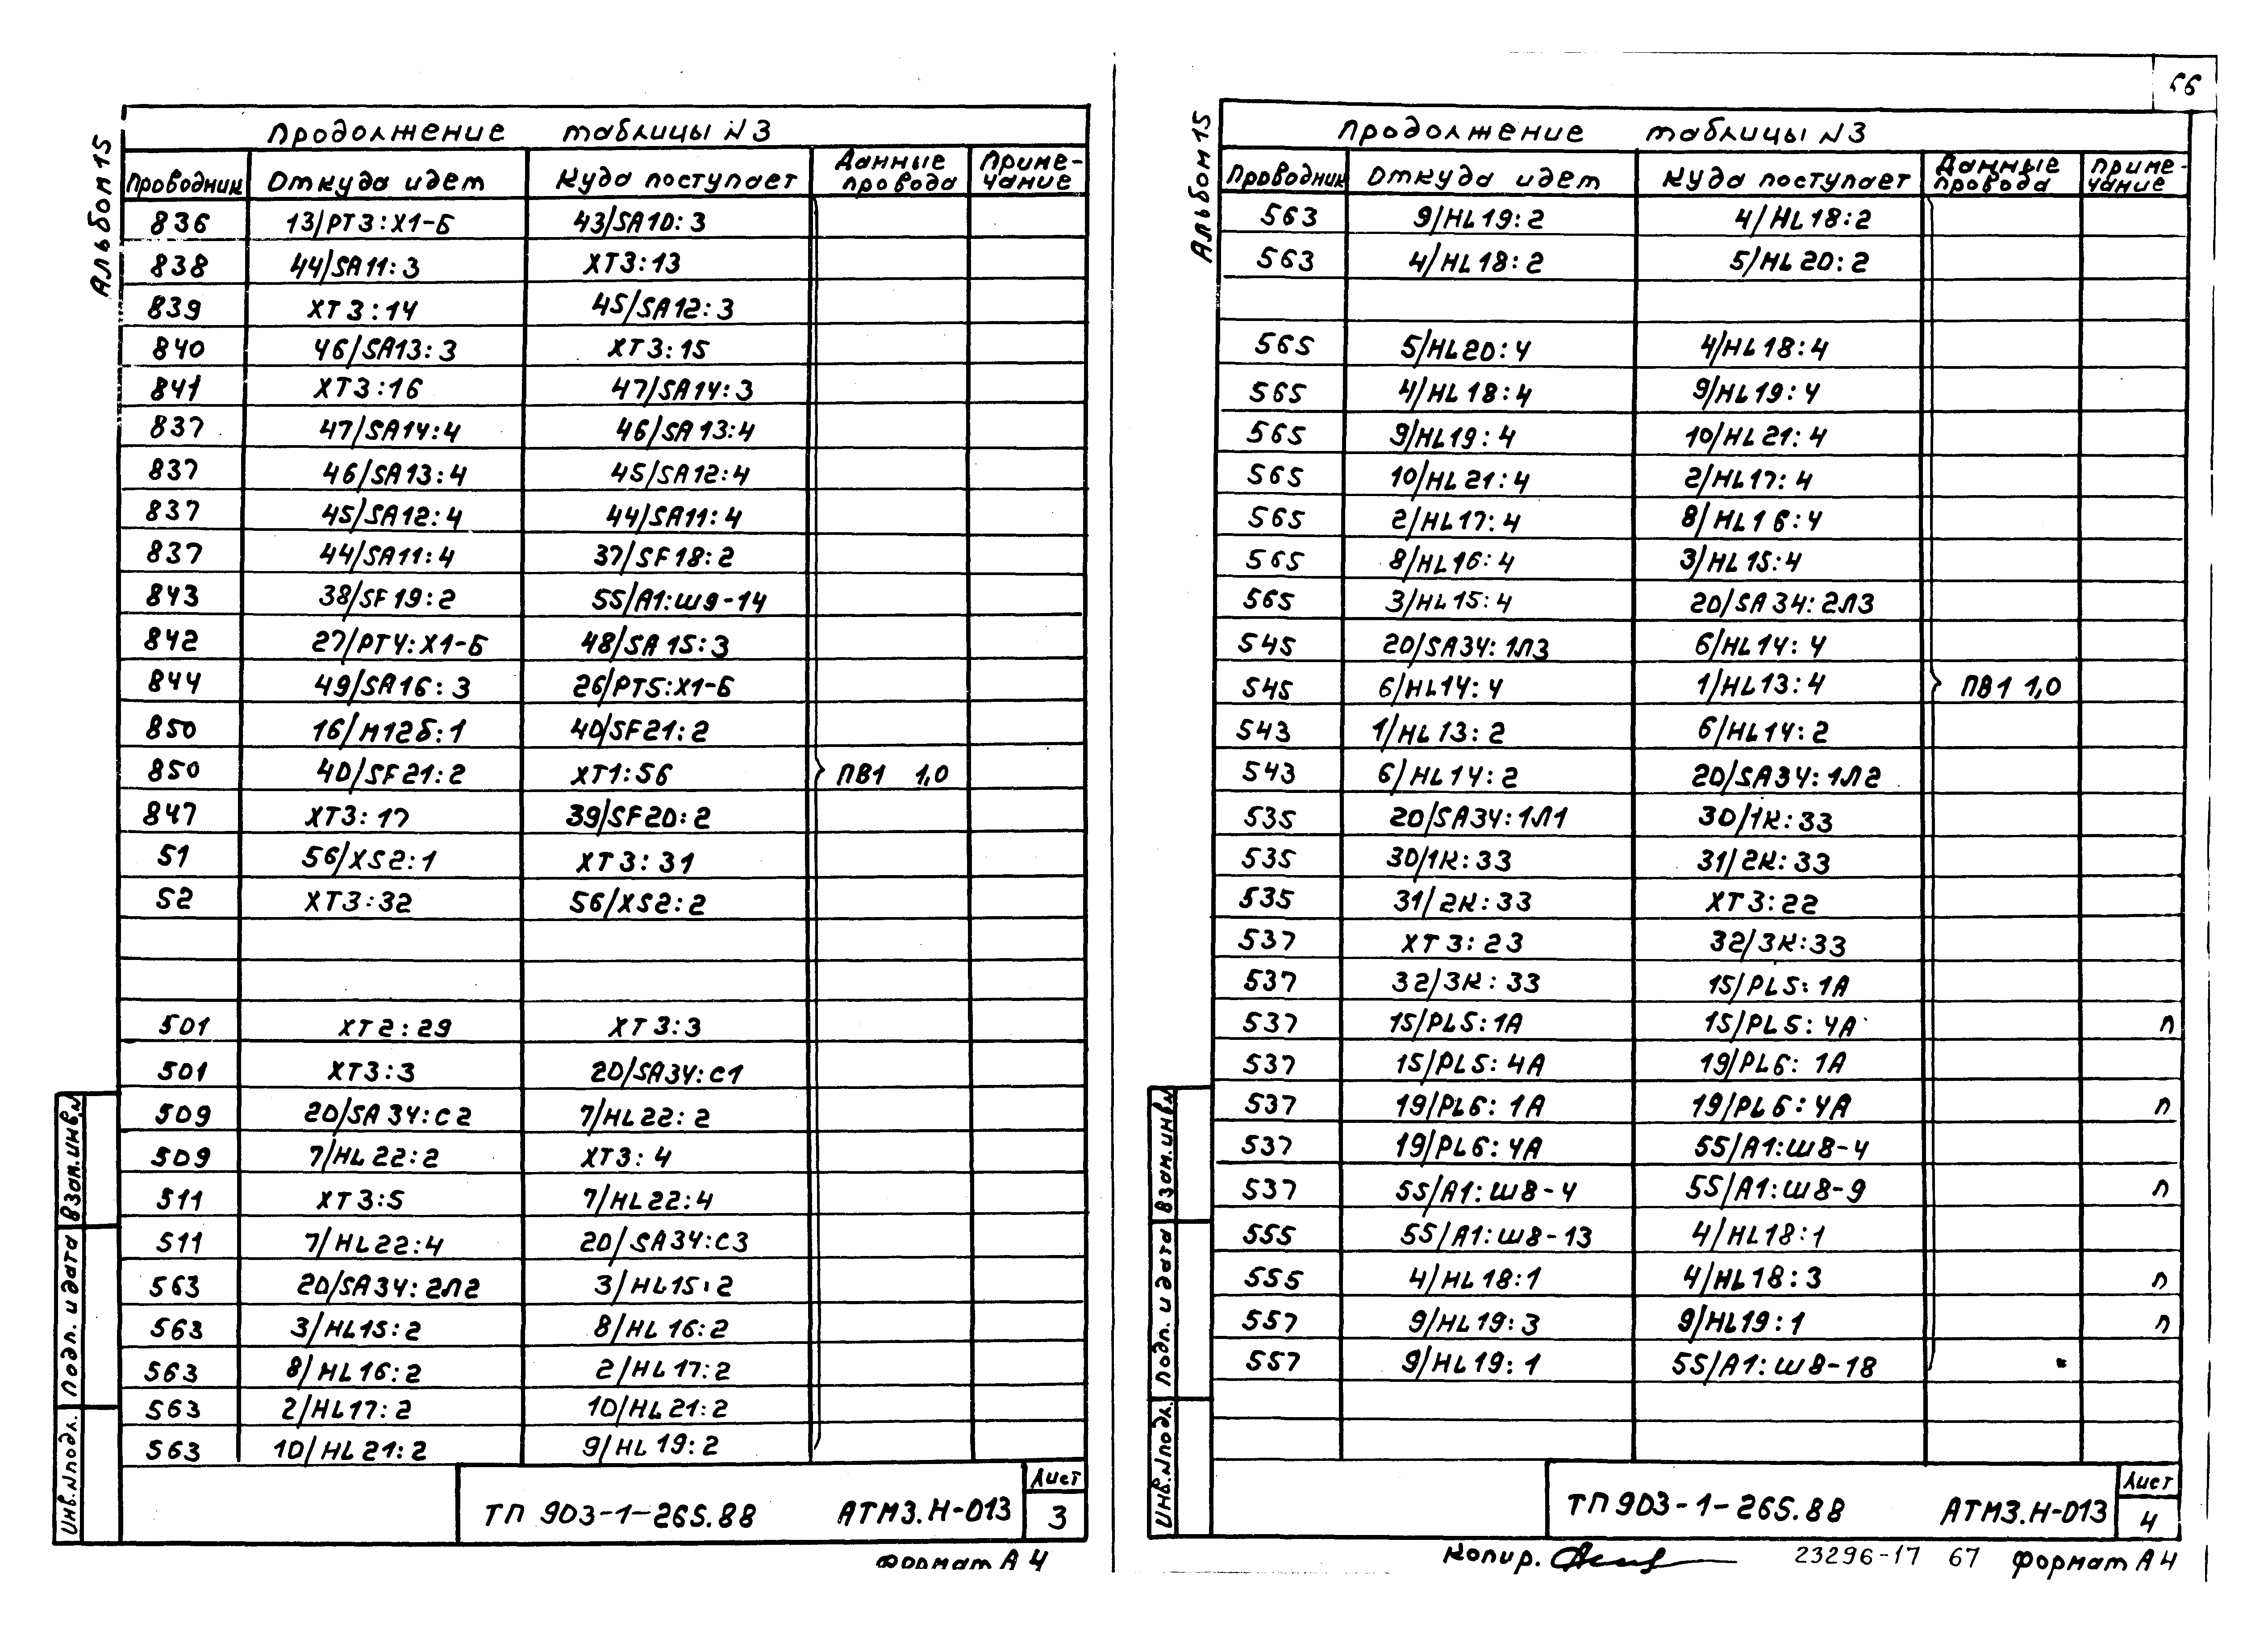 Альбом 15
Продолжение таблицы N3
Проводник Откуда идет Куда поступает Данные провода Приме-чание
836 13/РТ3:Х1-Б 43/SA10:3
838 44/SA11:3 ХТ3:13
839 ХТ3:14 45/SA12:3
840 46/SA13:3 ХТ3:15
841 ХТ3:16 47/SA14:3
837 47/SA14:4 46/SA13:4
837 46/SA13:4 45/SA12:4
837 45/SA12:4 44/SA11:4
837 44/SA11:4 37/SF18:2
843 38/SF19:2 55/А1:Ш9-14
842 27/РТ4:Х1-Б 48/SA15:3
844 49/SA16:3 26/РТ5:Х1-Б
850 16/М12б:1 40/SF21:2
850 40/SF21:2 ХТ1:56 ПВ1 1,0
847 ХТ3:17 39/SF20:2
51 56/XS2:1 ХТ3:31
52 ХТ3:32 56/XS2:2
501 ХТ2:29 ХТ3:3
501 ХТ3:3 20/SA34:С1
509 20/SA34:С2 7/HL22:2
509 7/HL22:2 ХТ3:4
511 ХТ3:5 7/HL22:4
511 7/HL22:4 20/SA34:С3
563 20/SA34:2Л2 3/HL15:2
563 3/HL15:2 8/HL16:2
563 8/HL16:2 2/HL17:2
563 2/HL17:2 10/HL21:2
563 10/HL21:2 9/HL19:2
Инв.Nподл. Подп. и дата Взам.инв.N
ТП 903-1-265.88 АТМ3.Н-013 Лист 3
Формат А4
66
Альбом 15
Продолжение таблицы N3
Проводник Откуда идет Куда поступает Данные провода Приме-чание
563 9/HL19:2 4/HL18:2
563 4/HL18:2 5/HL20:2
565 5/HL20:4 4/HL18:4
565 4/HL18:4 9/HL19:4
565 9/HL19:4 10/HL21:4
565 10/HL21:4 2/HL17:4
565 2/HL17:4 8/HL16:4
565 8/HL16:4 3/HL15:4
565 3/HL15:4 20/SA34:2Л3
545 20/SA34:1Л3 6/HL14:4
545 6/HL14:4 1/HL13:4 ПВ1 1,0
543 1/HL13:2 6/HL14:2
543 6/HL14:2 20/SA34:1Л2
535 20/SA34:1Л1 30/1К:33
535 30/1К:33 31/2К:33
535 31/2К:33 ХТ3:22
537 ХТ3:23 32/3К:33
537 32/3К:33 15/PL5:1А
537 15/PL5:1А 15/PL5:4А п
537 15/PL5:4А 19/PL6:1А
537 19/PL6:1А 19/PL6:4А п
537 19/PL6:4А 55/А1:Ш8-4
537 55/А1:Ш8-4 55/А1:Ш8-9 п
555 55/А1:Ш8-13 4/HL18:1
555 4/HL18:1 4/HL18:3 п
557 9/HL19:3 9/HL19:1 п
557 9/HL19:1 55/А1:Ш8-18
Инв.Nподл. Подп. и дата Взам.инв.N
ТП 903-1-265.88 АТМ3.Н-013 Лист 4
Копир. 23296-17 67 Формат А4